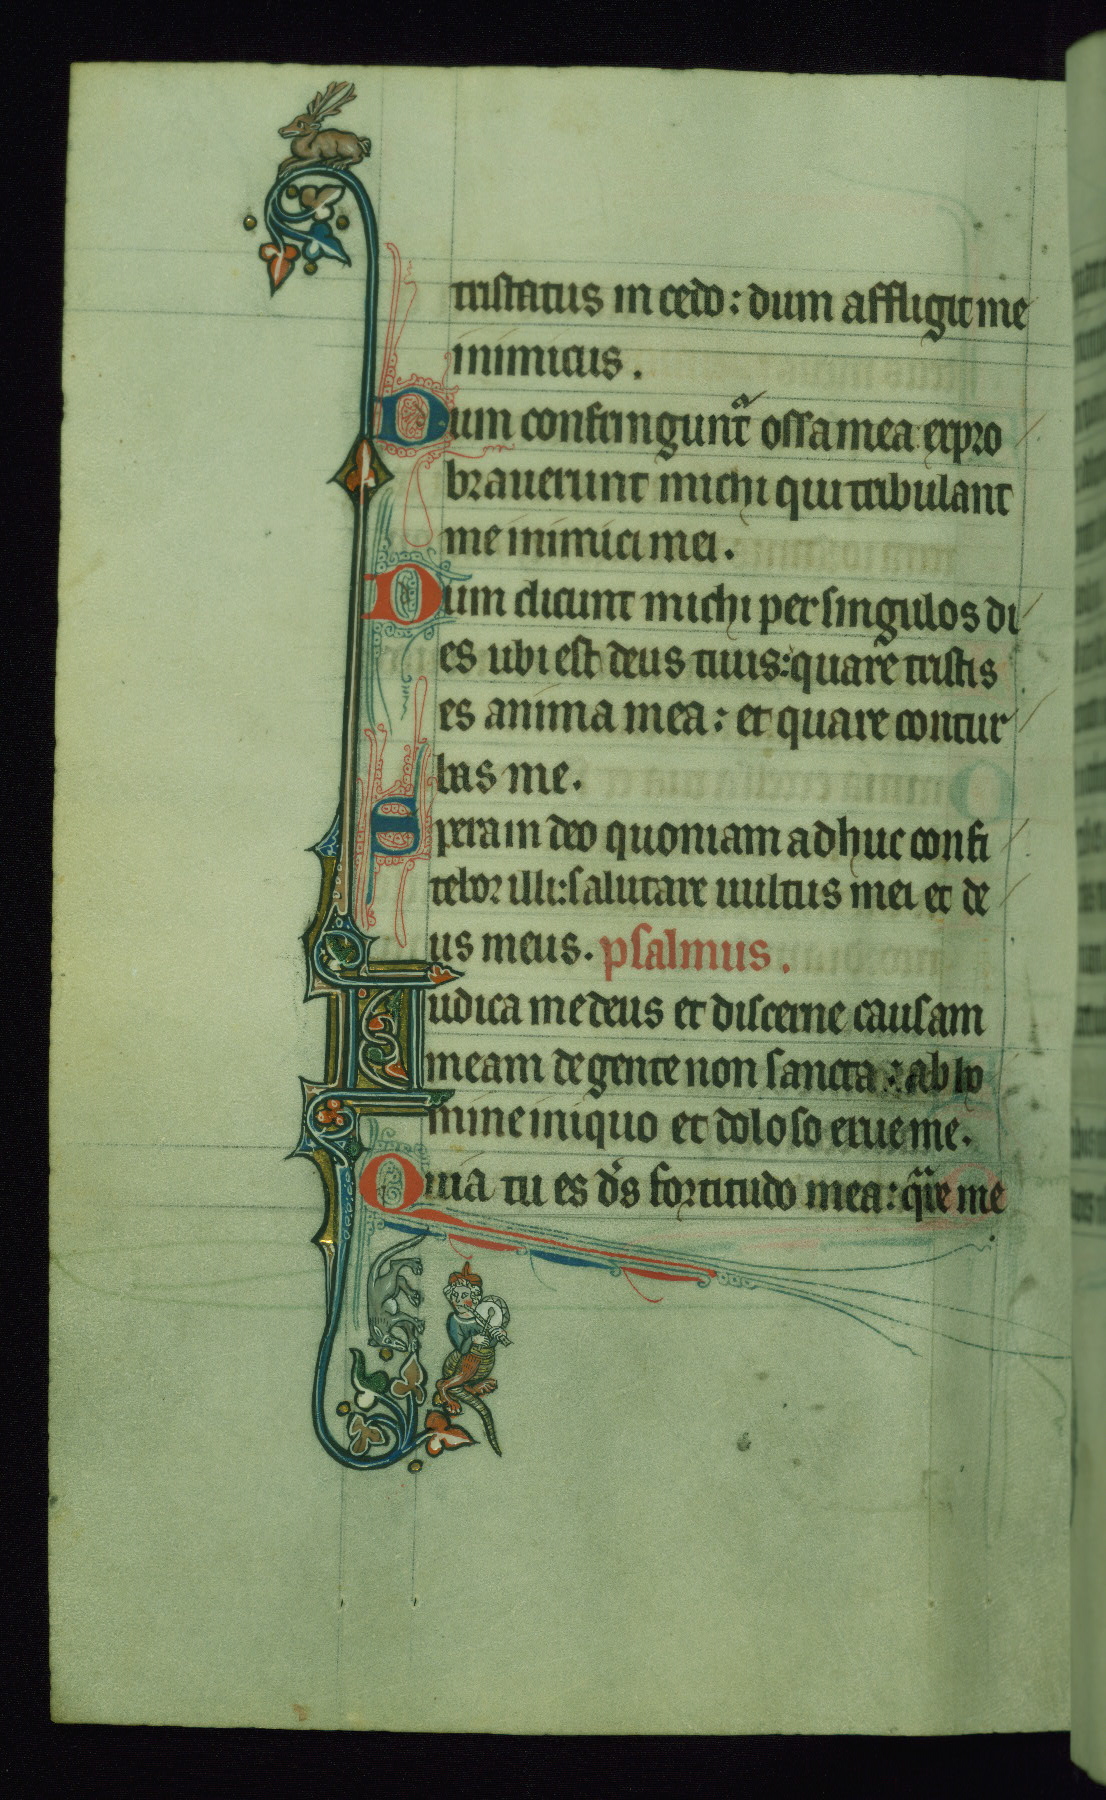 tristatus incedo: dum affligit me
inimicus.
Dum confringunt͛ ossa mea expro
brauerunt michi qui tribulant
me inimici mei.
Dum dicunt michi per singulos di
es ubi est deus tuus: quare tristis
es anima mea: et quare contur
bas me.
Spera in deo quoniam adhuc confi
tebor illi: salutare uultus mei et de
us meus. psalmus.
Iudica me deus et discerne causam
meam de gente non sancta: ab ho
mine iniquo et doloso erue me.
Quia tu es ds fortitudo mea: qre me